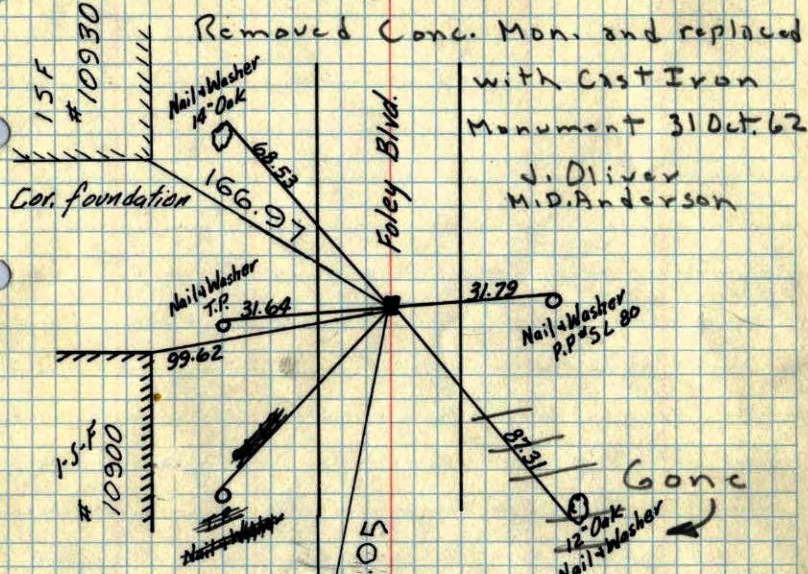 Removed Conc. Mon. and replaced
with Cast Iron
Monument 31 Oct. 62
J. Oliver
M.D. Anderson
15F
#10930
Nail & Washer
14" Oak
68.53
166.97
Cor. foundation
Foley Blvd.
Nail & Washer
T.P.
31.64
31.79
Nail & Washer
P.P #5L 80
99.62
1-S-F
# 10900
87.31
Gone
12" Oak
Nail & Washer
Nail & Washer
.05